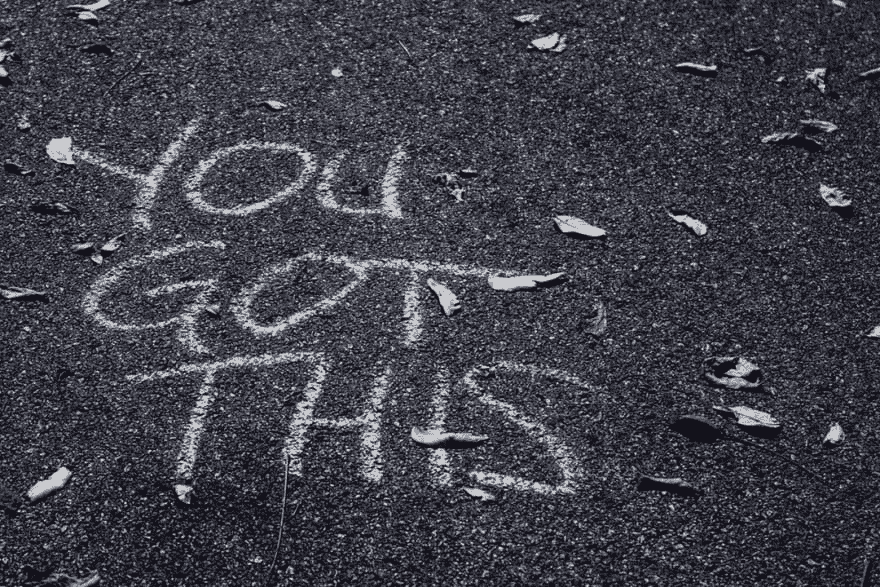 YOU
GOT
THIS